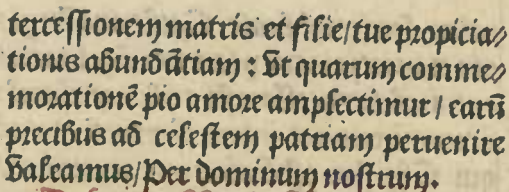 tercessionem matris et filie/tue propicia⸗
tionis abundātiam : Vt quarum comme⸗
morationē pio amore amplectimur / earū
precibus ad celestem patriam peruenire
valeamus/Per dominum nostrum.